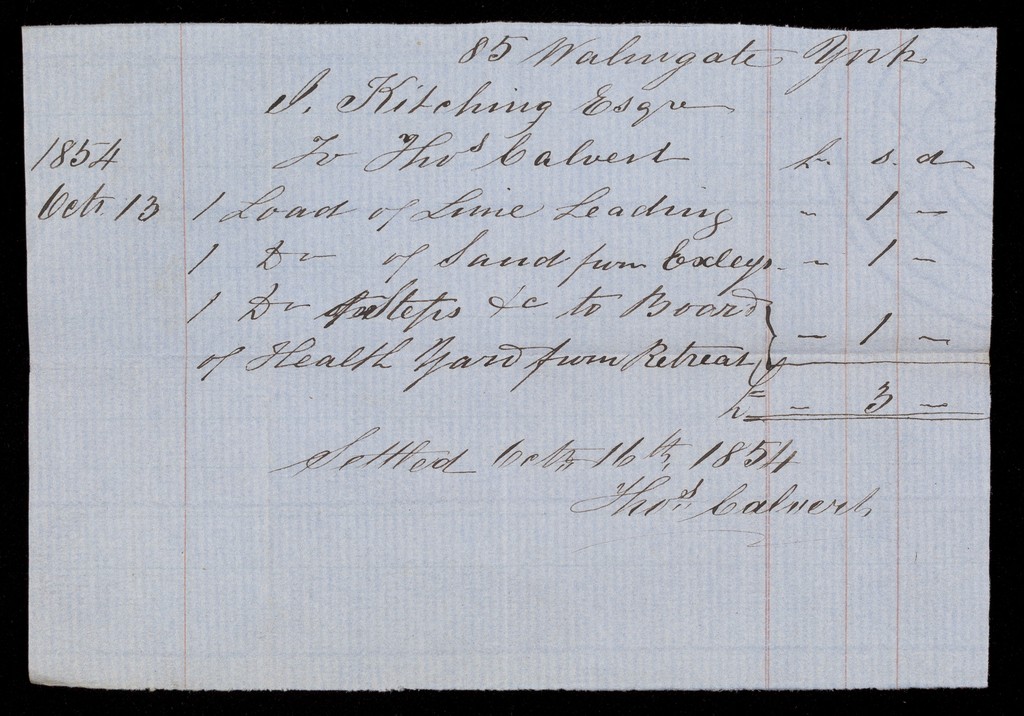 85 Walmgate York
J. Kitching Esqre
1854 To Thos Calvert £. s. d
Octr. 13 1 Load of Lime Leading " 1 –
1 Do of Sand from Exleys. – 1 –
1 Do Steps &c to Board
of Health Yard from Retreat } – 1 –
£ – 3 –
Settled Octr. 16th, 1854
Thos. Calvert